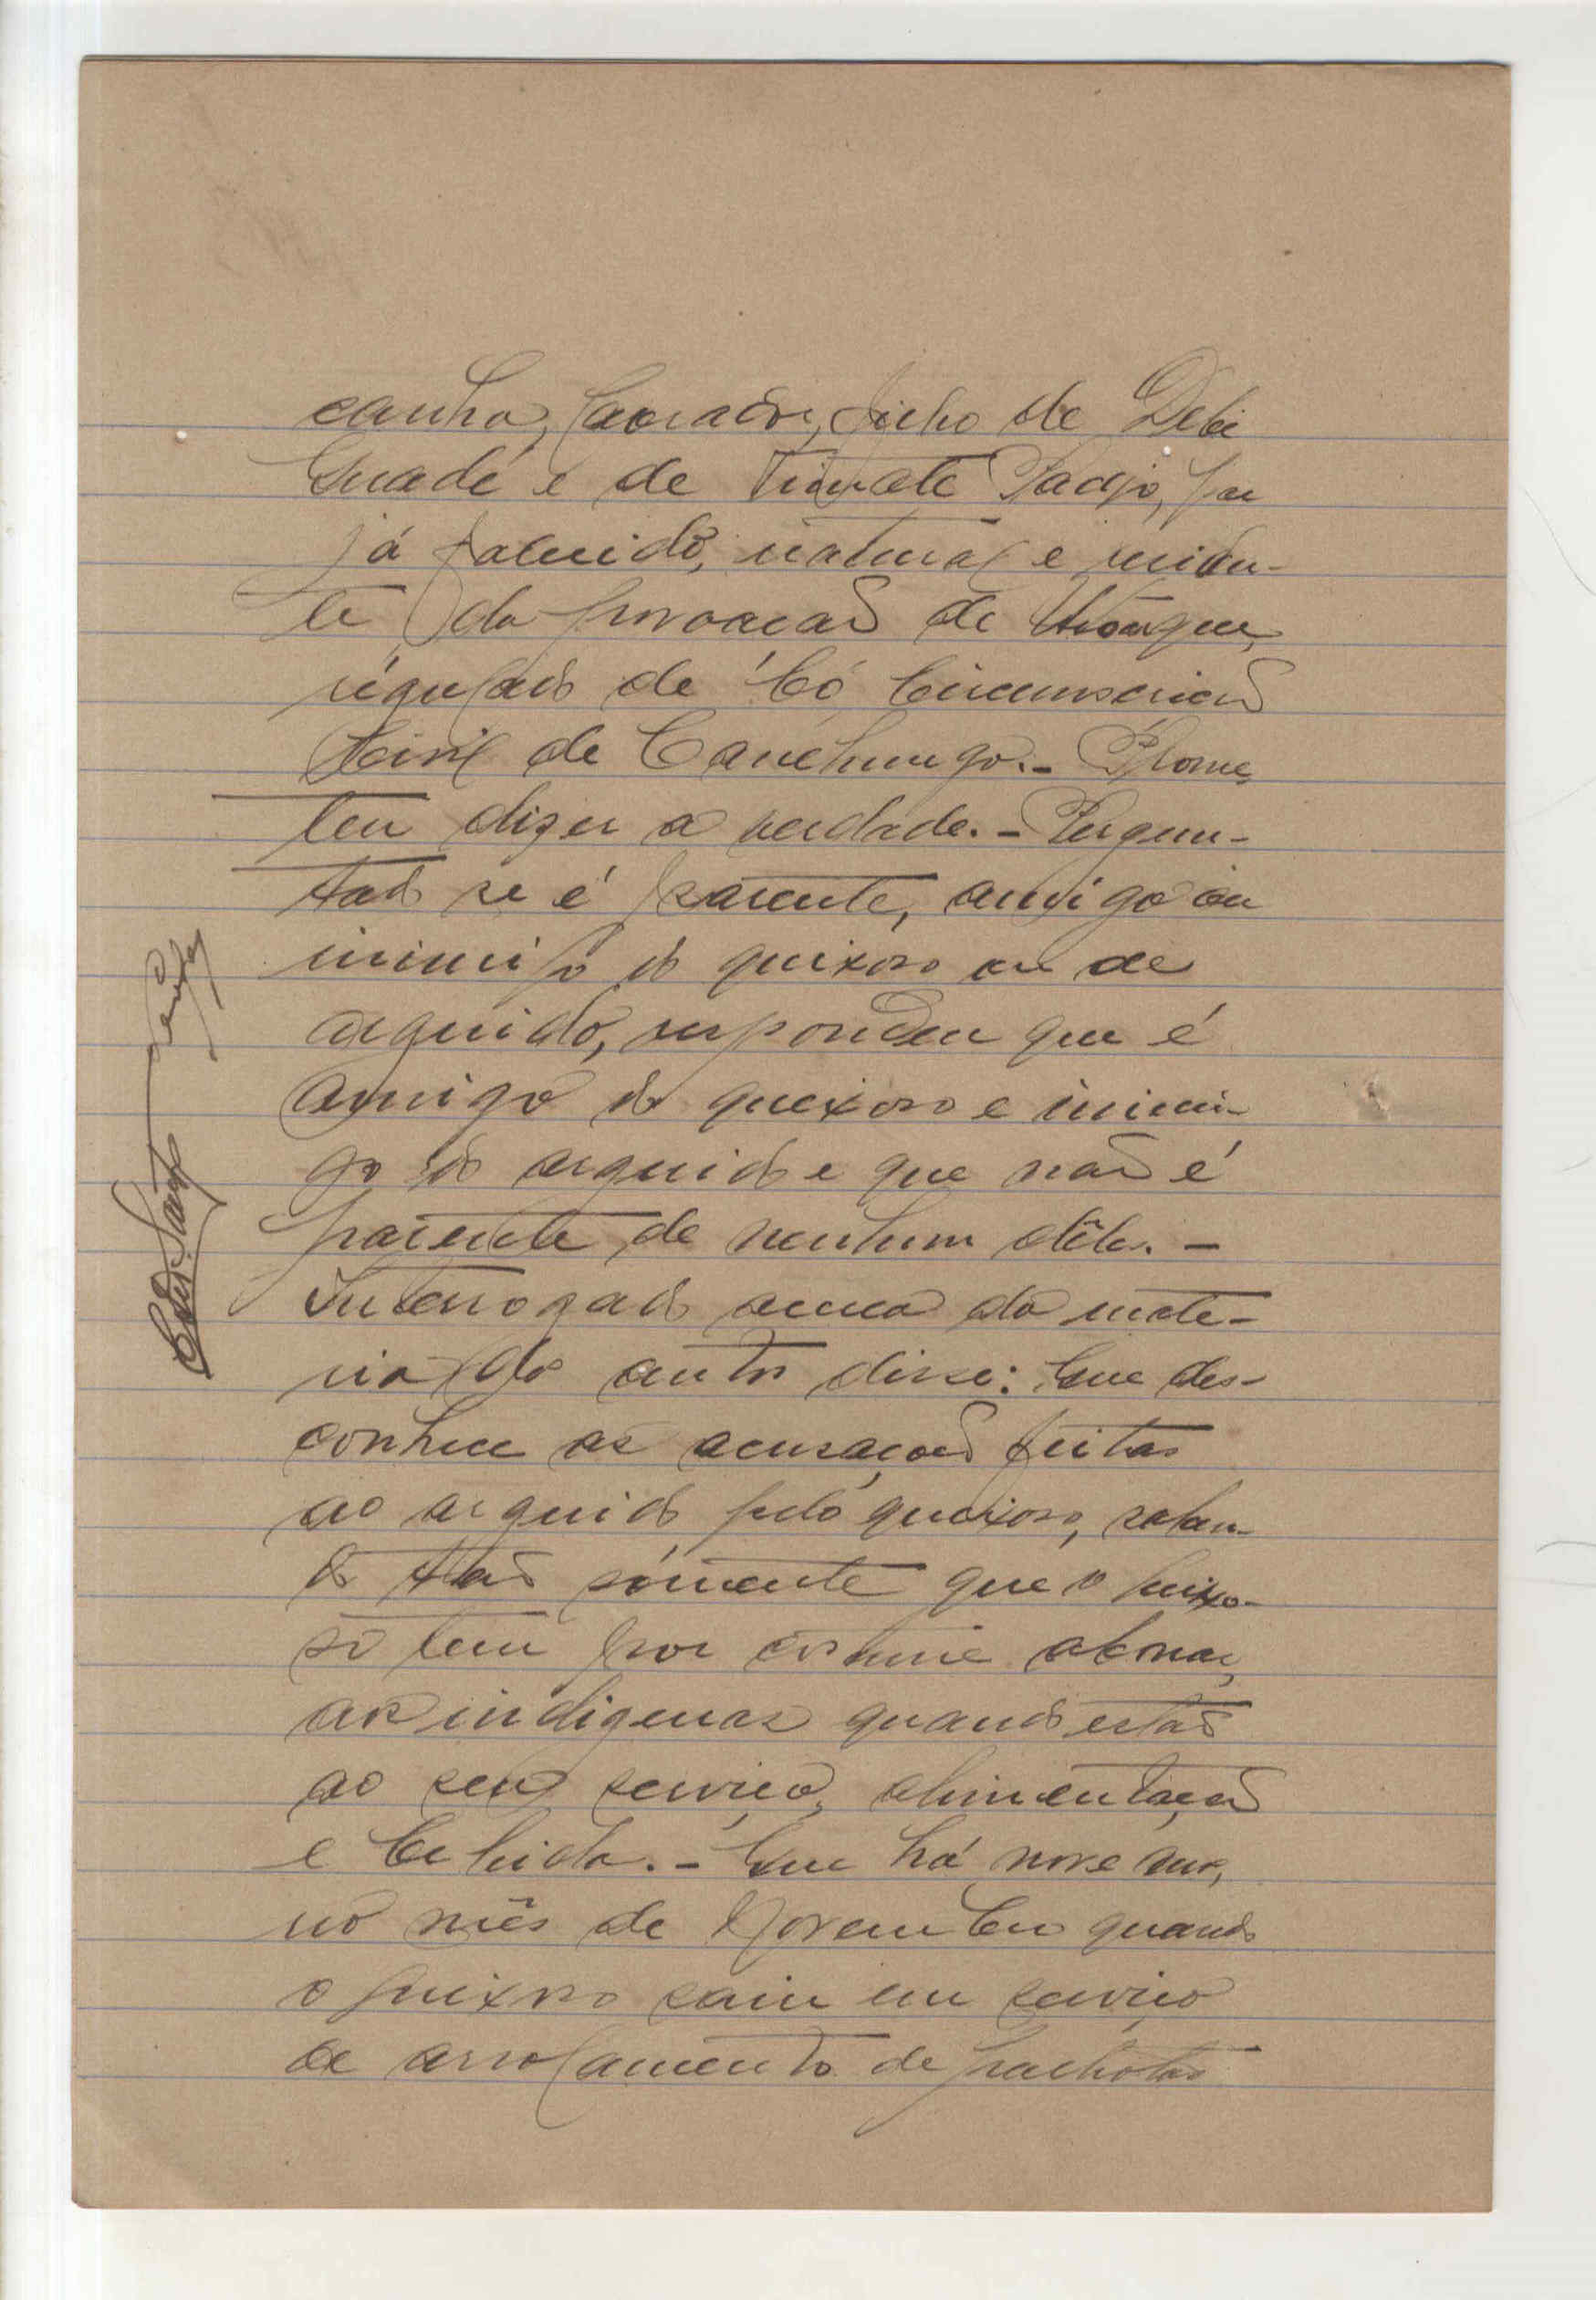 canha, lavrador, filho de Debi
Guadé e de Padjo,
já falecido, natural e residen-
te da povoação de
régulado de Có Circunscrição
Civil de Canchungo. - Prome-
teu dizer a verdade. - Pergun-
tado se é parente, amigo ou
inimigo do queixoso ou de
arguido, respondeu que é
amigo do queixoso e inimi-
go do arguido e que não é
parente de nenhum dêles. -
Interrogado acerca da maté-
ria do auto disse: Que des-
conhece as acusações feitas
ao arguido pelo queixoso, saben-
do tão sómente que o queixo-
so tem por costume abonar,
aos indigenas quando estão
ao seu serviço, alimentação
e bebida. - Que há nove
no mês de Novembro quando
o queixoso saiu em serviço
de arrolamento de palhotas